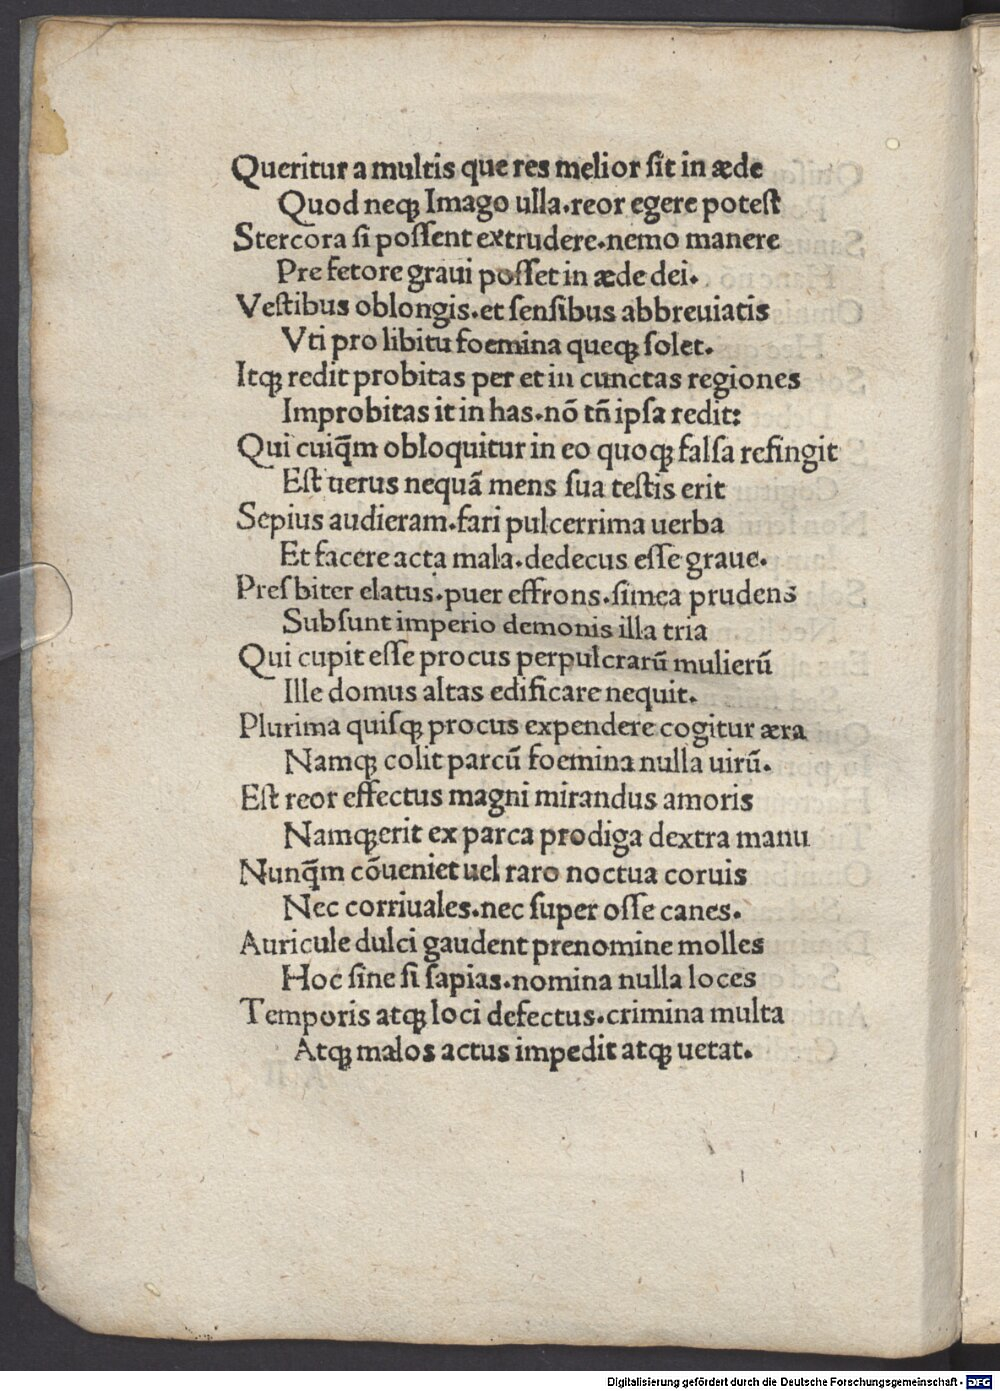 Queritur a multis que res melior ſit in æde
Quod neqꝫ Imago ulla.reor egere poteſt
Stercora ſi poſſent extrudere.nemo manere
Pre fetore graui poſſet in æde dei.
Veſtibus oblongis.et ſenſibus abbreuiatis
Vti pro libitu foemina queqꝫ ſolet.
Itqꝫ redit probitas per et in cunctas regiones
Improbitas it in has.nō tñ ipſa redit:
Qui cuiq̄m obloquitur in eo quoqꝫ falſa refingit
Eſt uerus nequā mens ſua teſtis erit
Sepius audieram.fari pulcerrima uerba
Et facere acta mala.dedecus eſſe graue.
Preſbiter elatus.puer effrons.simea prudens
Subſunt imperio demonis illa tria
Qui cupit eſſe procus perpulcrarū mulierū
Ille domus altas edificare nequit.
Plurima quiſqꝫ procus expendere cogitur æra
Namqꝫ colit parcū foemina nulla uirū.
Eſt reor effectus magni mirandus amoris
Namqꝫ erit ex parca prodiga dextra manu
Nunq̄m cōueniet uel raro noctua coruis
Nec corriuales.nec ſuper oſſe canes.
Auricule dulci gaudent prenomine molles
Hoc ſine ſi ſapias.nomina nulla loces
Temporis atqꝫ loci defectus.crimina multa
Atqꝫ malos actus impedit atqꝫ uetat.
Digitalisierung gefördert durch die Deutsche Forschungsgemeinschaft - DFG